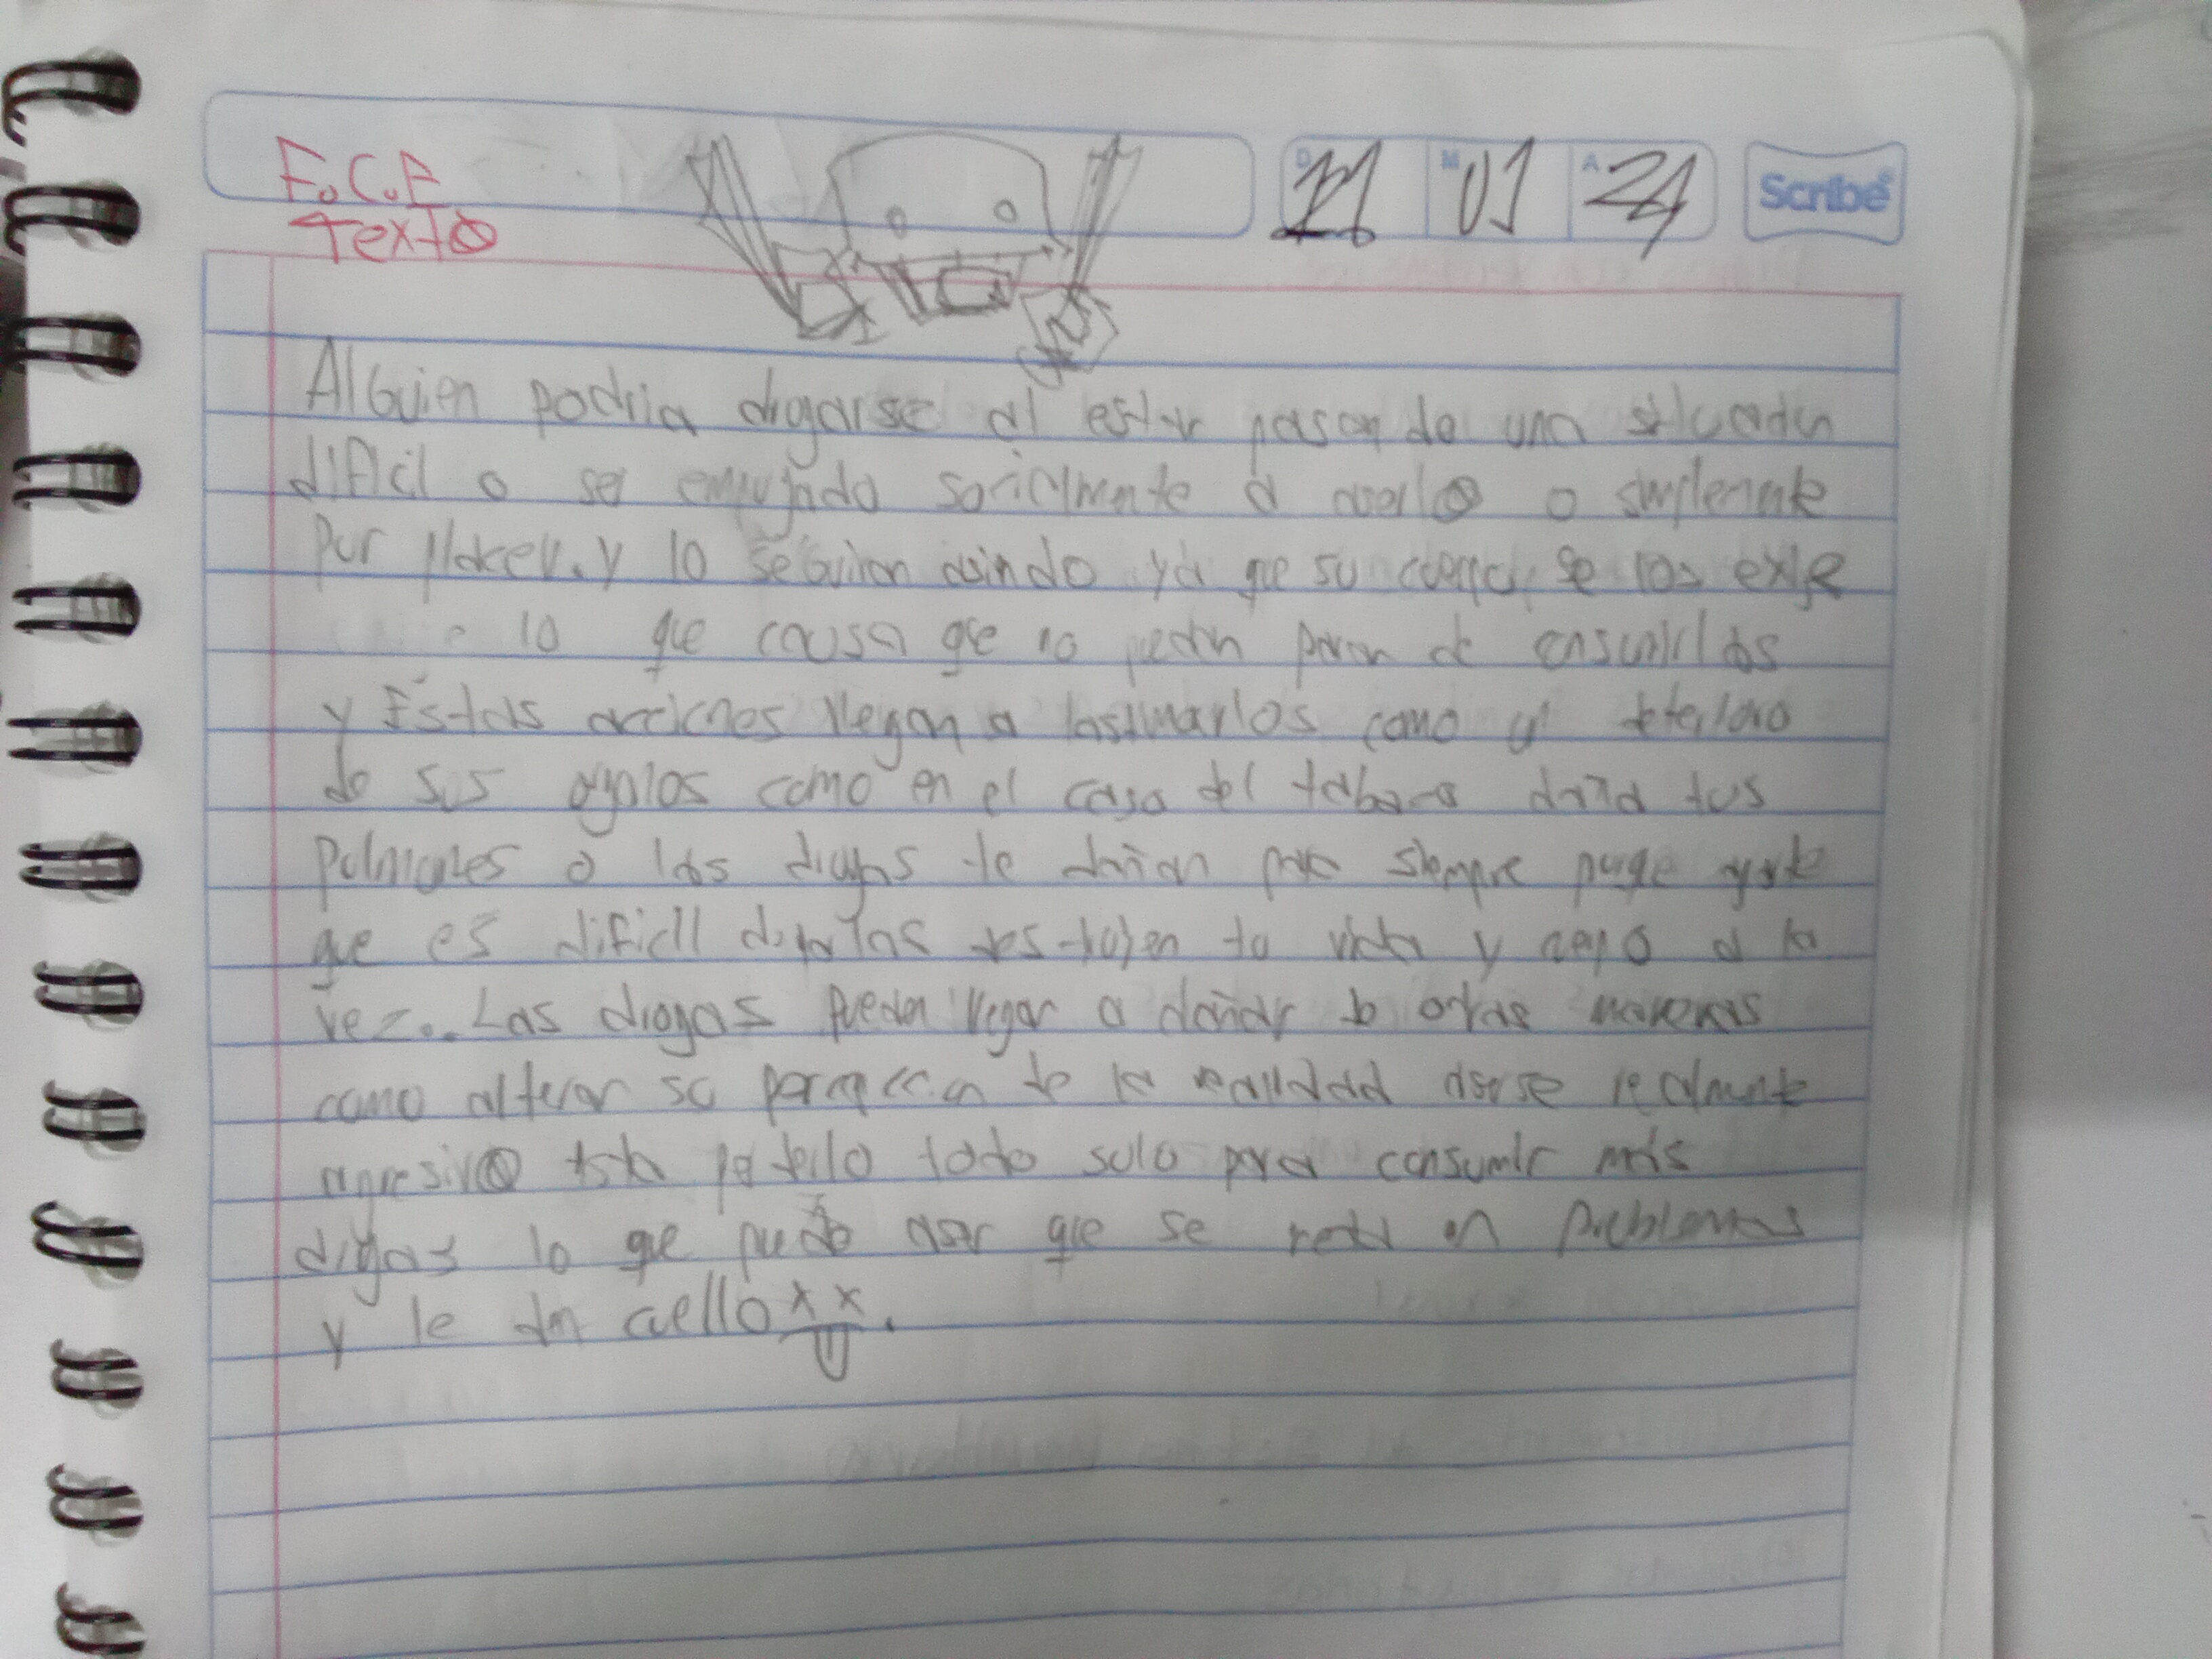 F.C.E
Texto
D M A
01 24
Scribe
Alguien podria drgarse al estar pasando una situadn
dificil o ser empujado socialmente a aserlo o simplemente
por placer. y lo seguiran asindo ya que su cuerpo se los exige
lo que causa que no puedan parar de consumirlos
y Estas acciones llegan a lastimarlos como el deterioro
de sus organos como en el caso del tabaco daña tus
pulmones o las drogas te dañan para siempre porque
que es dificil dejarlas destruyen tu vida y cuerpo a la
vez.. Las drogas pueden llegar a dañar de otras maneras
como alterar su percepcion de la realidad aserse realmente
agresivo asta perderlo todo solo para consumir más
drgas lo que puede aser que se meta en problemas
y le dan cuello